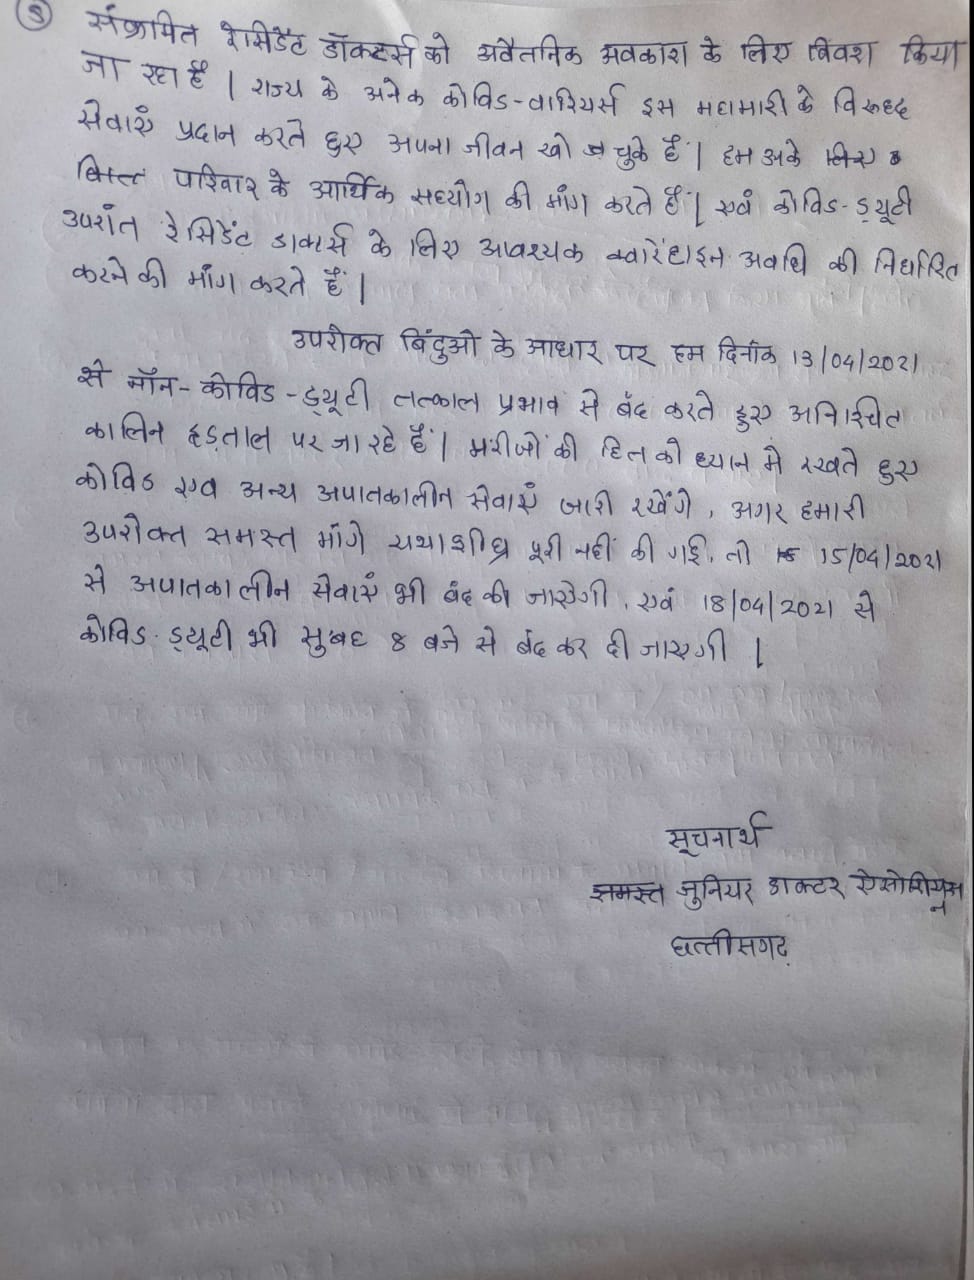 ③ संक्रामित रेसिडेंट डॉक्टर्स को अवैतनिक अवकाश के लिए विवश किया
जा रहा है | राज्य के अनेक कोविड-वारियर्स इस महामारी के विरूध्द
सेवाएं प्रदान करते हुए अपना जीवन खो चुके हैं | हम
परिवार के आर्थिक सहयोग की माँग करते हैं | एवं कोविड-ड्यूटी
उपरांत रेसिडेंट डाक्टर्स के लिए आवश्यक क्वारेंटाइन अवधि की निर्धारित
करने की माँग करते हैं |
उपरोक्त बिंदुओ के आधार पर हम दिनाँक 13/04/2021
से नॉन-कोविड-ड्यूटी तत्काल प्रभाव से बंद करते हुए अनिश्चित
कालिन हड़ताल पर जा रहे हैं | मरीजों की हित को ध्यान मे रखते हुए
कोविड एव अन्य अपातकालीन सेवाएं जारी रखेंगे, अगर हमारी
उपरोक्त समस्त माँगे यथाशीध्र पूरी नहीं की गई, तो 15/04/2021
से अपातकालीन सेवाएं भी बंद की जाएगी, एवं 18/04/2021 से
कोविड-ड्यूटी भी सुबह 8 बजे से बंद कर दी जाएगी |
सूचनार्थ
समस्त जुनियर डाक्टर ऐसोशियन
छत्तीसगढ़